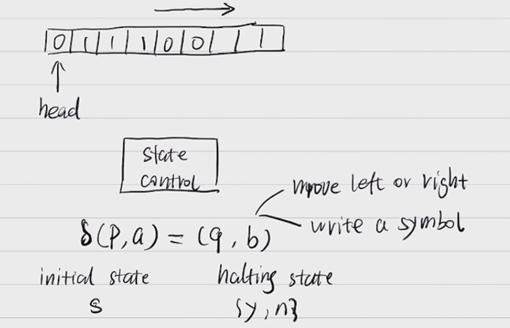 0 1 1 1 0 0
head
state
control
move left or right
δ(p,a) = (q,b)
write a symbol
initial state halting state
s {y,n}